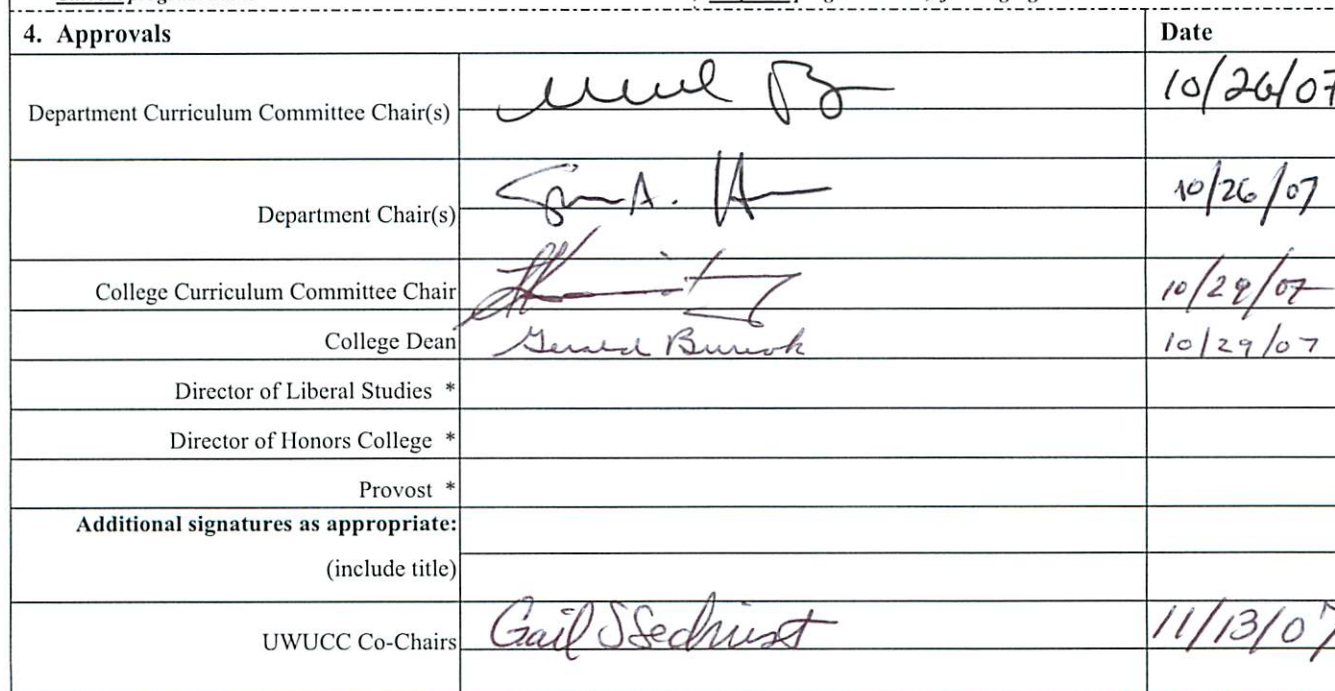 4. Approvals Date
Department Curriculum Committee Chair(s) 10/26/07
Department Chair(s) A. 10/26/07
College Curriculum Committee Chair 10/29/07
College Dean Gerald Buriok 10/29/07
Director of Liberal Studies *
Director of Honors College *
Provost *
Additional signatures as appropriate:
(include title)
UWUCC Co-Chairs Gail S Sechrist 11/13/07